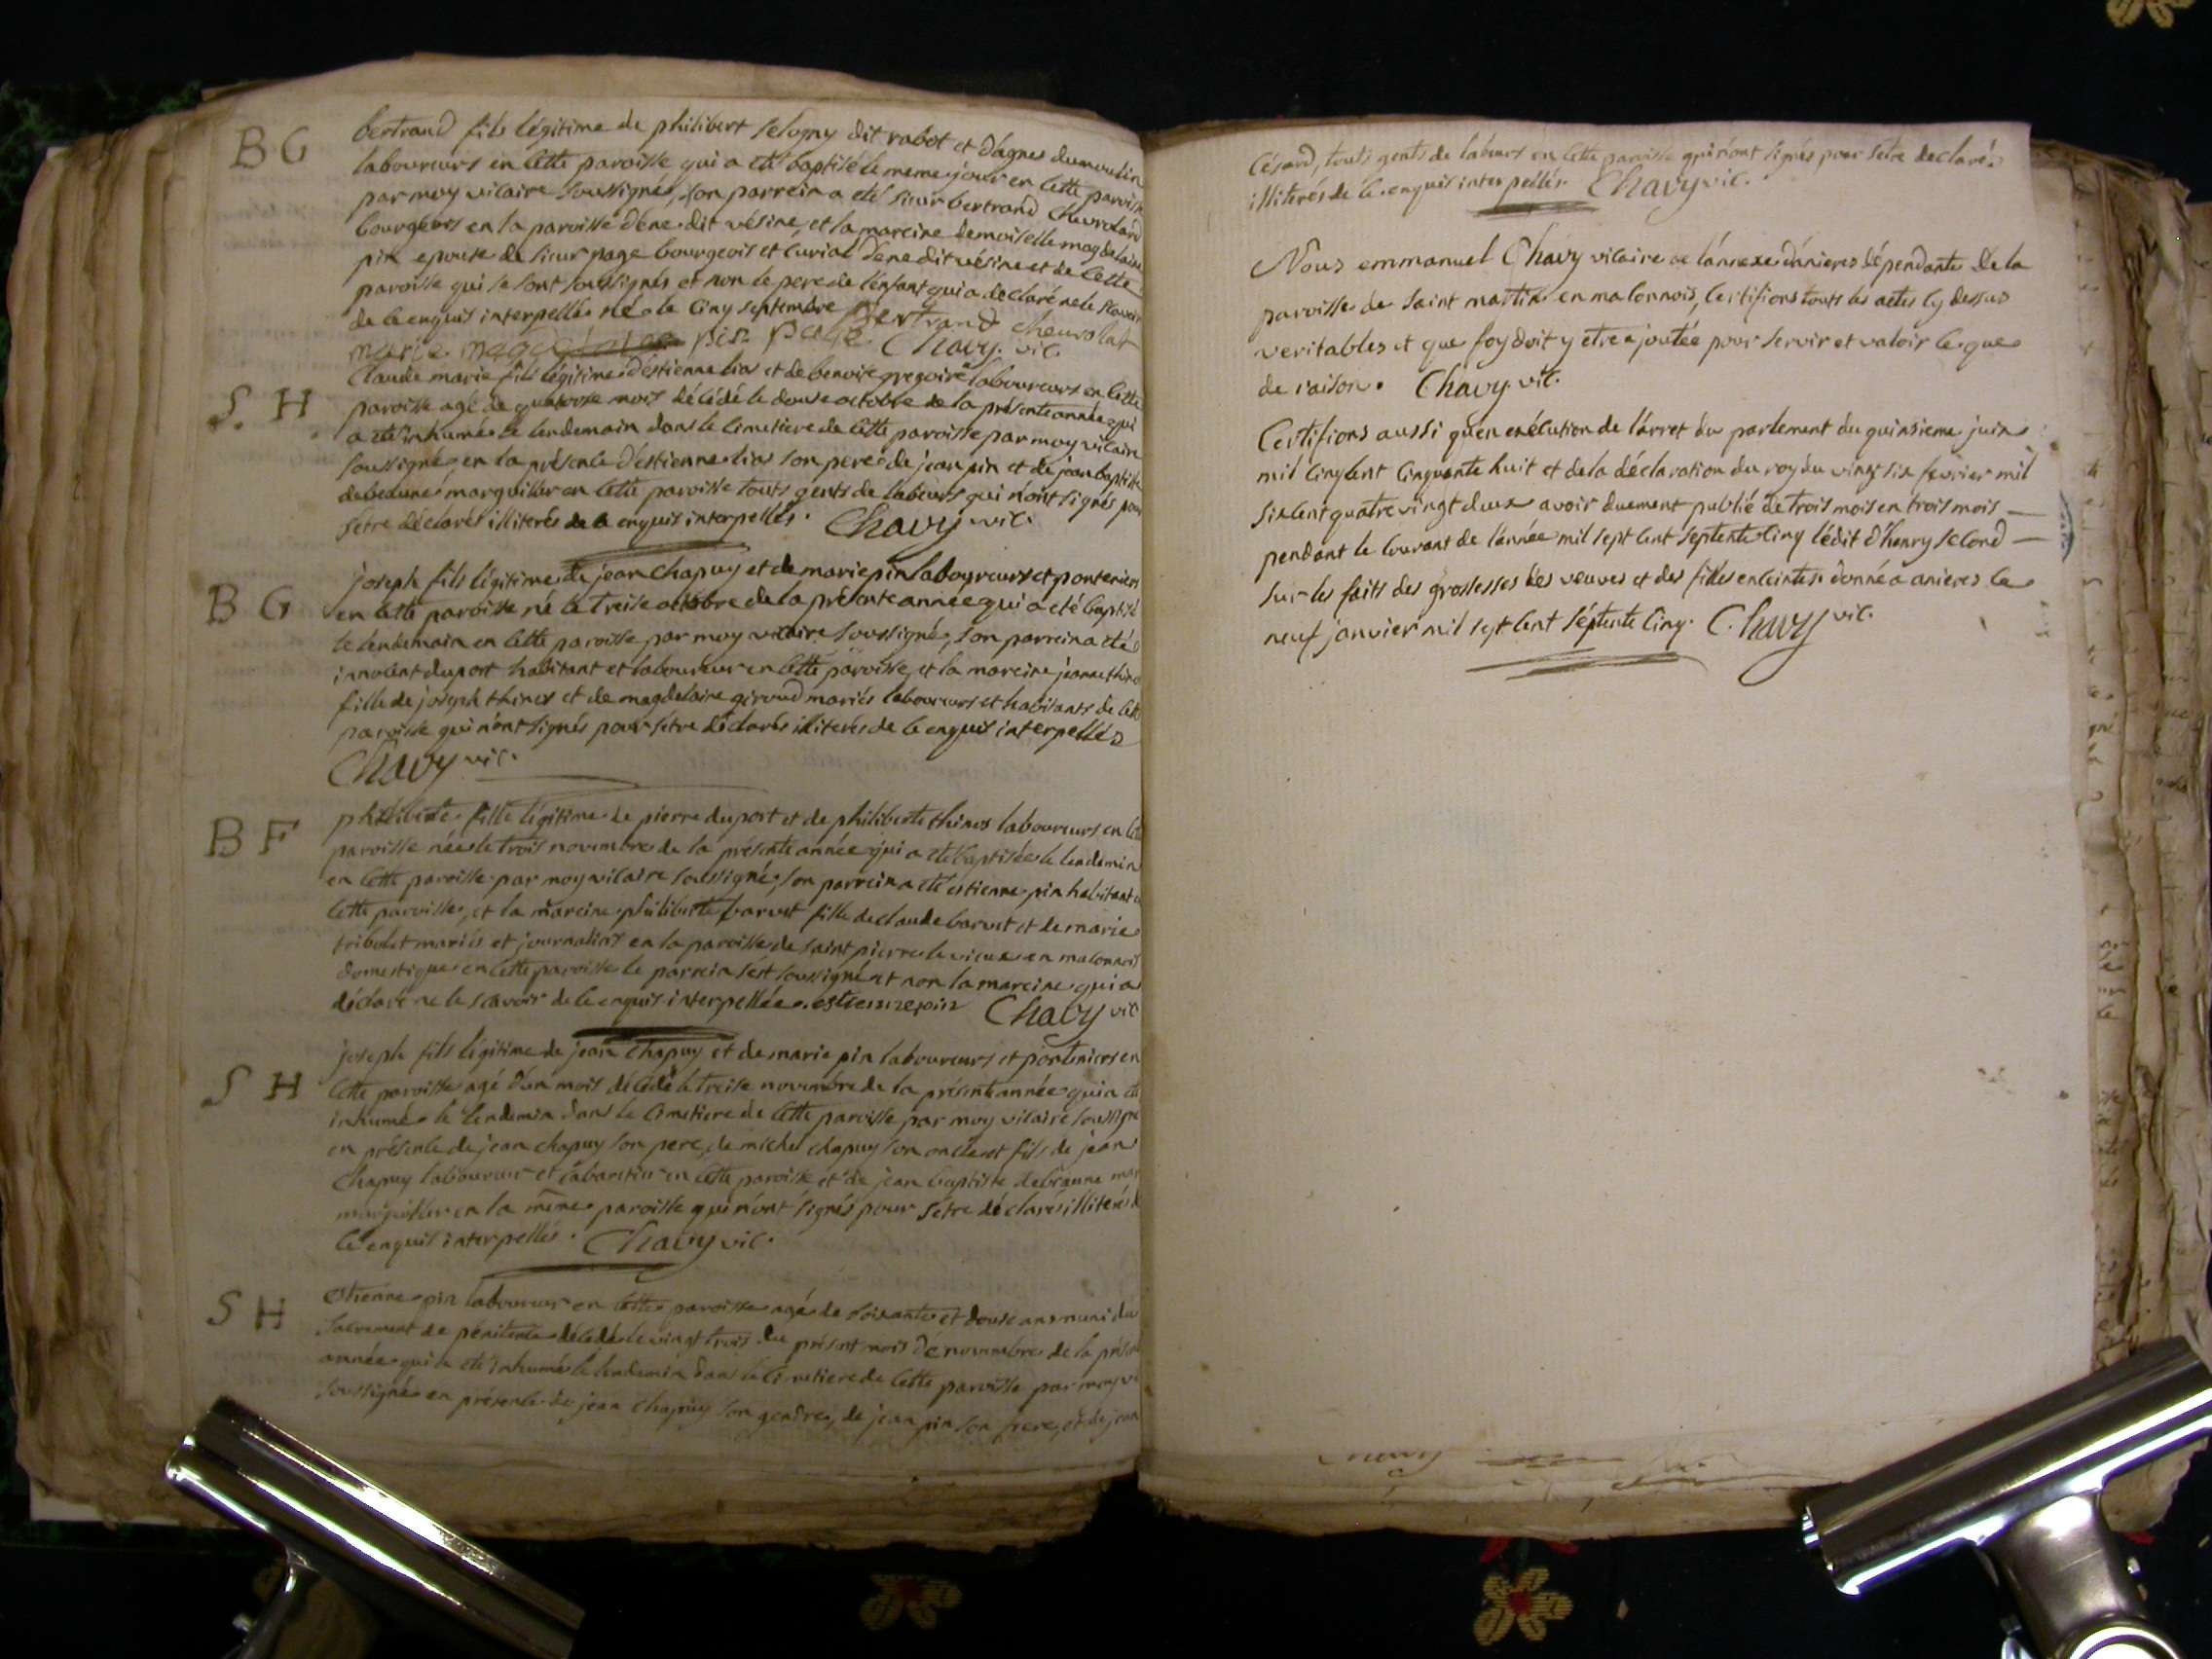 BG
bertrand fils légitime de philibert selogny dit rabot et d'agnes dumoulin
laboureurs en cette paroisse qui a eté baptisé le meme jour en cette paroisse
par moy vicaire soussigné, son parrein a eté sieur bertrand chevrolard
bourgeois en la paroisse d'ene dit vésine, et la mareine demoiselle magdelaine
pin epouse de sieur page bourgeois et curial d'ene dit vésine et de cette
paroisse qui se sont soussignés et non le pere de l'enfant qui a déclaré ne le scavoir
de ce enquis interpellé né le cinq septembre Bertrand cheurolat
marie pin page Chavy. vic
S. H
Claude marie fils légitime d'éstienne lias et de benoite gregoire laboureurs en cette
paroisse agé de quatorse mois décédé le douse octobre de la présente année qui
a eté inhumé le lendemain dans le cimetiere de cette paroisse par moy vicaire
soussigné, en la présence d'éstienne lias son pere, de jean pin et de jean baptiste
debeaune marguiller en cette paroisse touts gents de labeurs qui n'ont signés pour
s'etre déclarés illiterés de ce enquis interpellés. Chavy vic.
BG
joseph fils légitime de jean chapuy et de marie pin laboureurs et ponteniers
en cette paroisse né le treise octobre de la présente année qui a eté baptisé
le lendemain en cette paroisse par moy vicaire soussigné, son parrein a eté
innocent duport habitant et laboureur en cette paroisse, et la mareine jeanne thinos
fille de joseph thinos et de magdelaine giroud mariés laboureurs et habitants de cette
paroisse qui n'ont signés pour s'etre déclarés illiterés de ce enquis interpellés
Chavy vic.
BF
philiberte fille légitime de pierre duport et de philiberte thinos laboureurs en cette
paroisse née le trois novembre de la présente année qui a eté baptisée le lendemin
en cette paroisse par moy vicaire soussigné, son parrein a eté estienne pin habitant
cette paroisse, et la mareine philiberte barvet fille de claude barvet et de marie
tribolet mariés et journaliers en la paroisse de saint pierre le vieux en malonnois
domestique en cette paroisse le parrein s'est soussigné et non la mareine qui a
déclaré ne le scavoir de ce enquis interpellée. estienne pin Chavy vic
S H
joseph fils légitime de jean chapuy et de marie pin laboureurs et ponteniers en
cette paroisse agé d'un mois décédé le treise novembre de la présente année qui a eté
inhumé le lendemin dans le cimetiere de cette paroisse par moy vicaire soussigné
en présence de jean chapuy son pere, de michel chapuy son oncle et fils de jean
Chapuy laboureur et cabaretier en cette paroisse et de jean baptiste debeaune mar
marguiller en la même paroisse qui n'ont signés pour s'etre déclarés illiterés de
ce enquis interpellés. Chavy vic.
S H
Etienne pin laboureur en cette paroisse agé de soixante et douse ans muni du
sacrement de pénitence décédé le vingt trois du présent mois de novembre de la présente
année qui a eté inhumé le lendemin dans le cimetiere de cette paroisse par moy vi
soussigné en présence de jean chapuy son gendre, de jean pin son frere, et de jean
césard, touts gents de labeurs en cette paroisse qui n'ont signés pour s'etre declarés
illiterés de ce enquis interpellés. Chavy vic.
Nous emmanuel Chavy vicaire de l'annexe d'anieres dépendante de la
paroisse de saint martin en malonnois, certifions touts les actes cy dessus
veritables et que foy doit y etre ajoutée pour servir et valoir ce que
de raison. Chavy. vic.
Certifions aussi qu'en exécution de l'arret du parlement du quinsieme juin
mil cinq cent cinquante huit et de la déclaration du roy du vingt six fevrier mil
six cent quatre vingt deux avoir duement publié de trois mois en trois mois —
pendant le courant de l'année mil sept cent septente cinq l'édit d'henry second —
sur les faits des grossesses des veuves et des filles enceintes donné a anieres le
neuf janvier mil sept cent séptente cinq. Chavy vic.